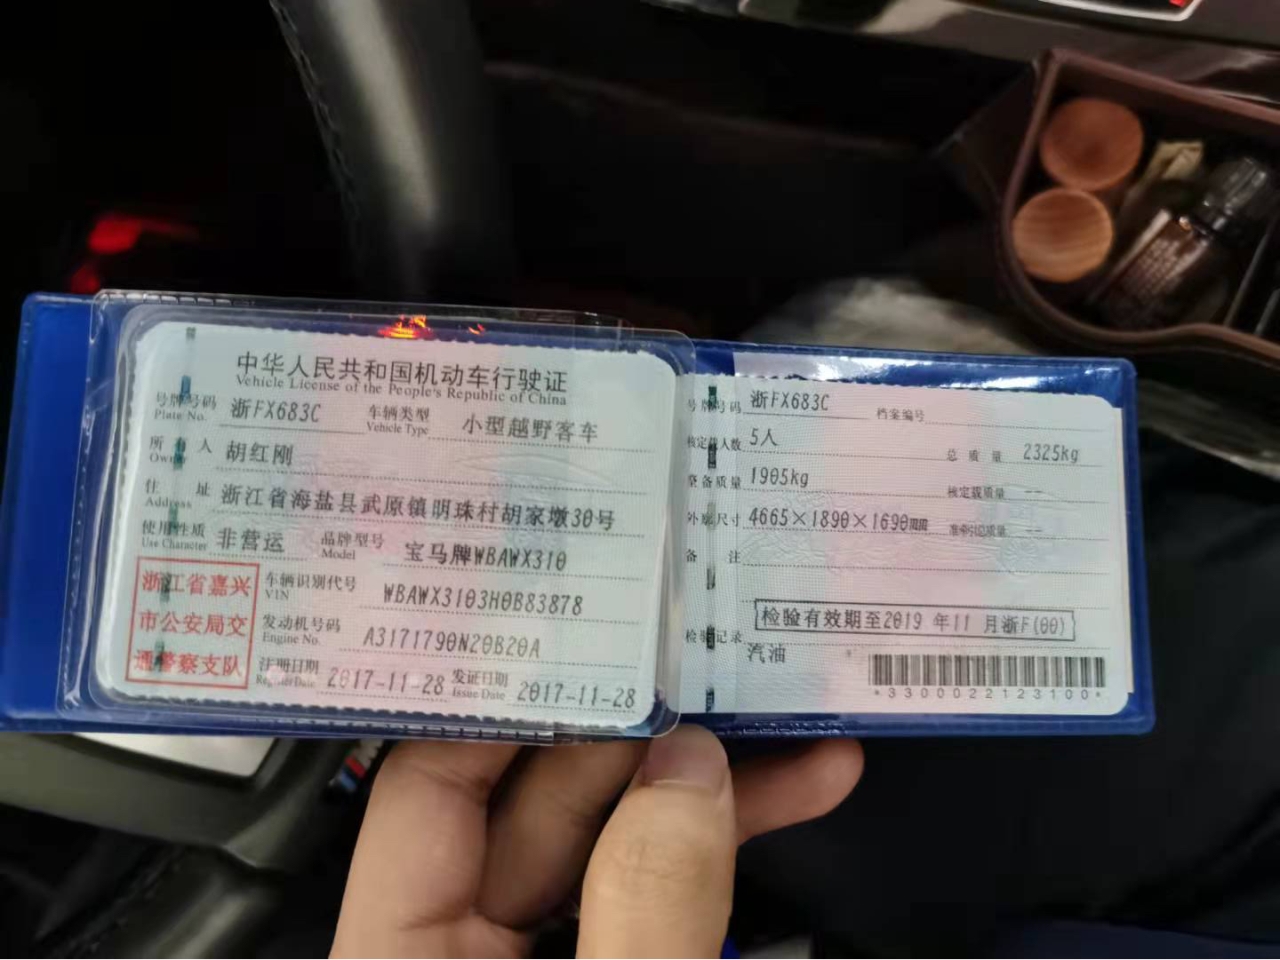 中华人民共和国机动车行驶证
Vehicle License of the People's Republic of China
号牌号码 浙FX683C 车辆类型 小型越野客车
Plate No. Vehicle Type
所有人 胡红刚
Owner
住址 浙江省海盐县武原镇明珠村胡家墩30号
Address
使用性质 非营运 品牌型号 宝马牌WBAWX310
Use Character Model
浙江省嘉兴
市公安局交
通警察支队
车辆识别代号 WBAWX3103H0B83878
VIN
发动机号码 A3171790N20B20A
Engine No.
注册日期 2017-11-28 发证日期 2017-11-28
Register Date Issue Date
号牌号码 浙FX683C 档案编号
核定载人数 5人 总质量 2325kg
整备质量 1905kg 核定载质量 --
外廓尺寸 4665×1890×1690mm 准牵引总质量 --
备注
检验有效期至2019年11月浙F(00)
检验记录
汽油
*3300022123100*